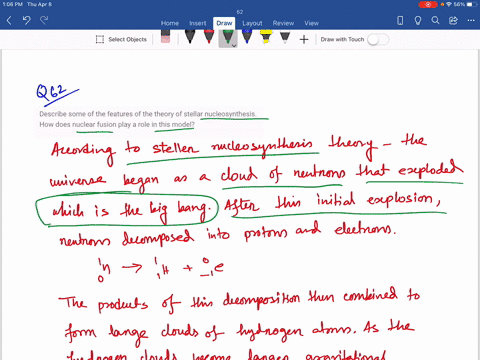 1:06 PM Thu Apr 8
56%
62
Home Insert Draw Layout Review View
Select Objects
Draw with Touch
Q62
Describe some of the features of the theory of stellar nucleosynthesis.
How does nuclear fusion play a role in this model?
According to stellen nucleosynthesis theory - the
universe began as a cloud of neutrons that exploded
which is the big bang. After this initial explosion,
neutrons decomposed into protons and electrons.
¹₀n → ¹₁H + ⁰₋₁e
The products of this decomposition then combined to
form large clouds of hydrogen atoms. As the
hydrogen clouds become larger gravitational